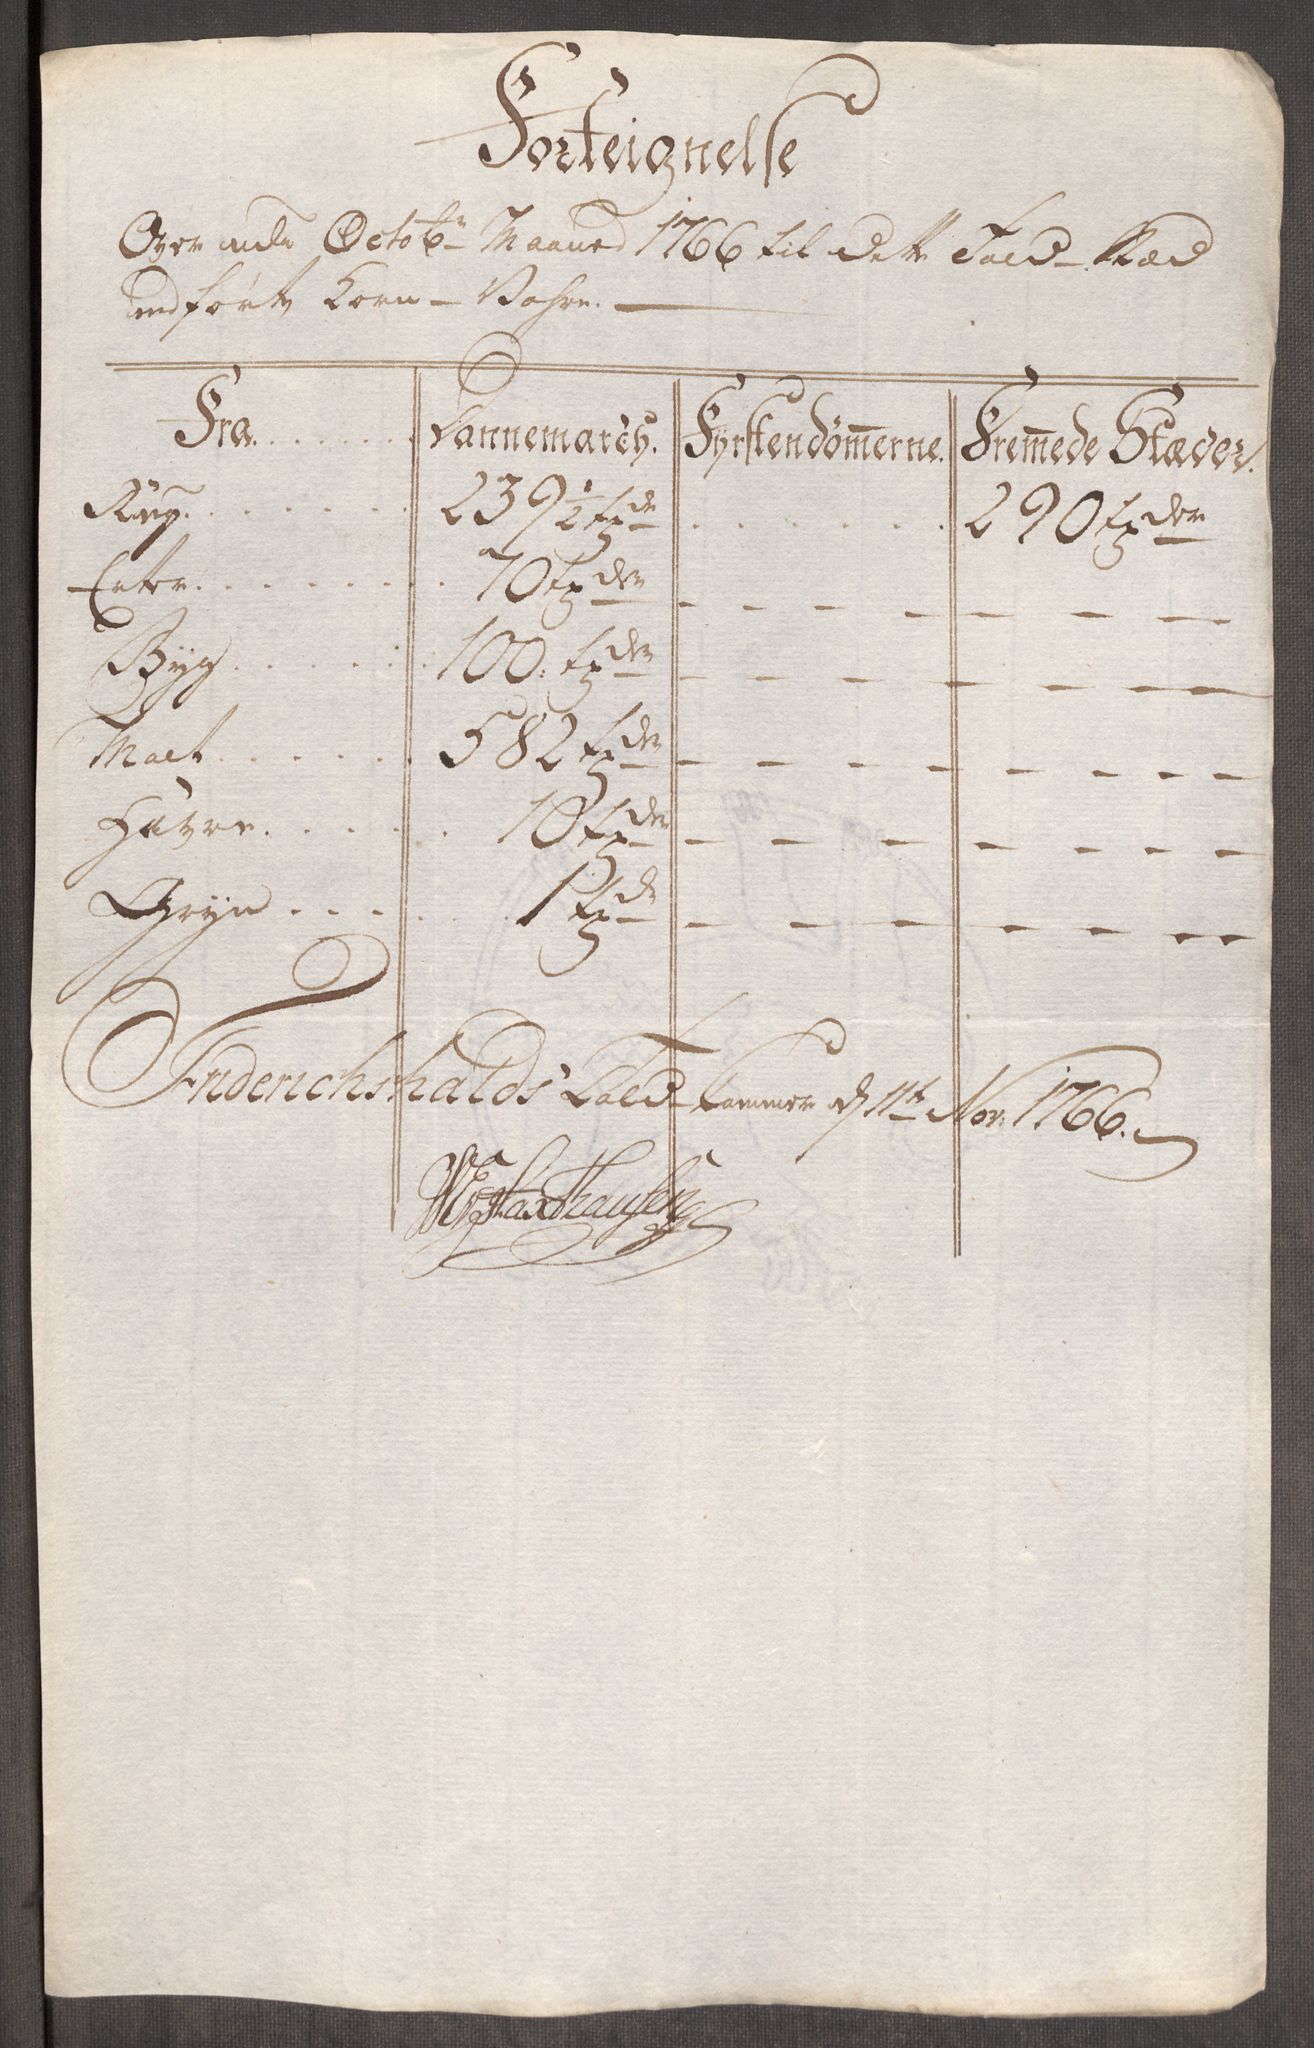 Forteignelse
Over udi Octobr Maaned 1766 til dette Told-Stæd
indførte Korn-Vahre.
Fra. Dannemarch. Fyrstendömerne. Fremede Stæder.
Rug. 239 1/2 tøde 290 tøder
Erter. 70 tøder
Byg. 100. tøder
Malt. 582 tøder
Havre. 10 tøder
Gryn 1 tøde
Friderichshalds Told-Kammer d 11te Nov. 1766.